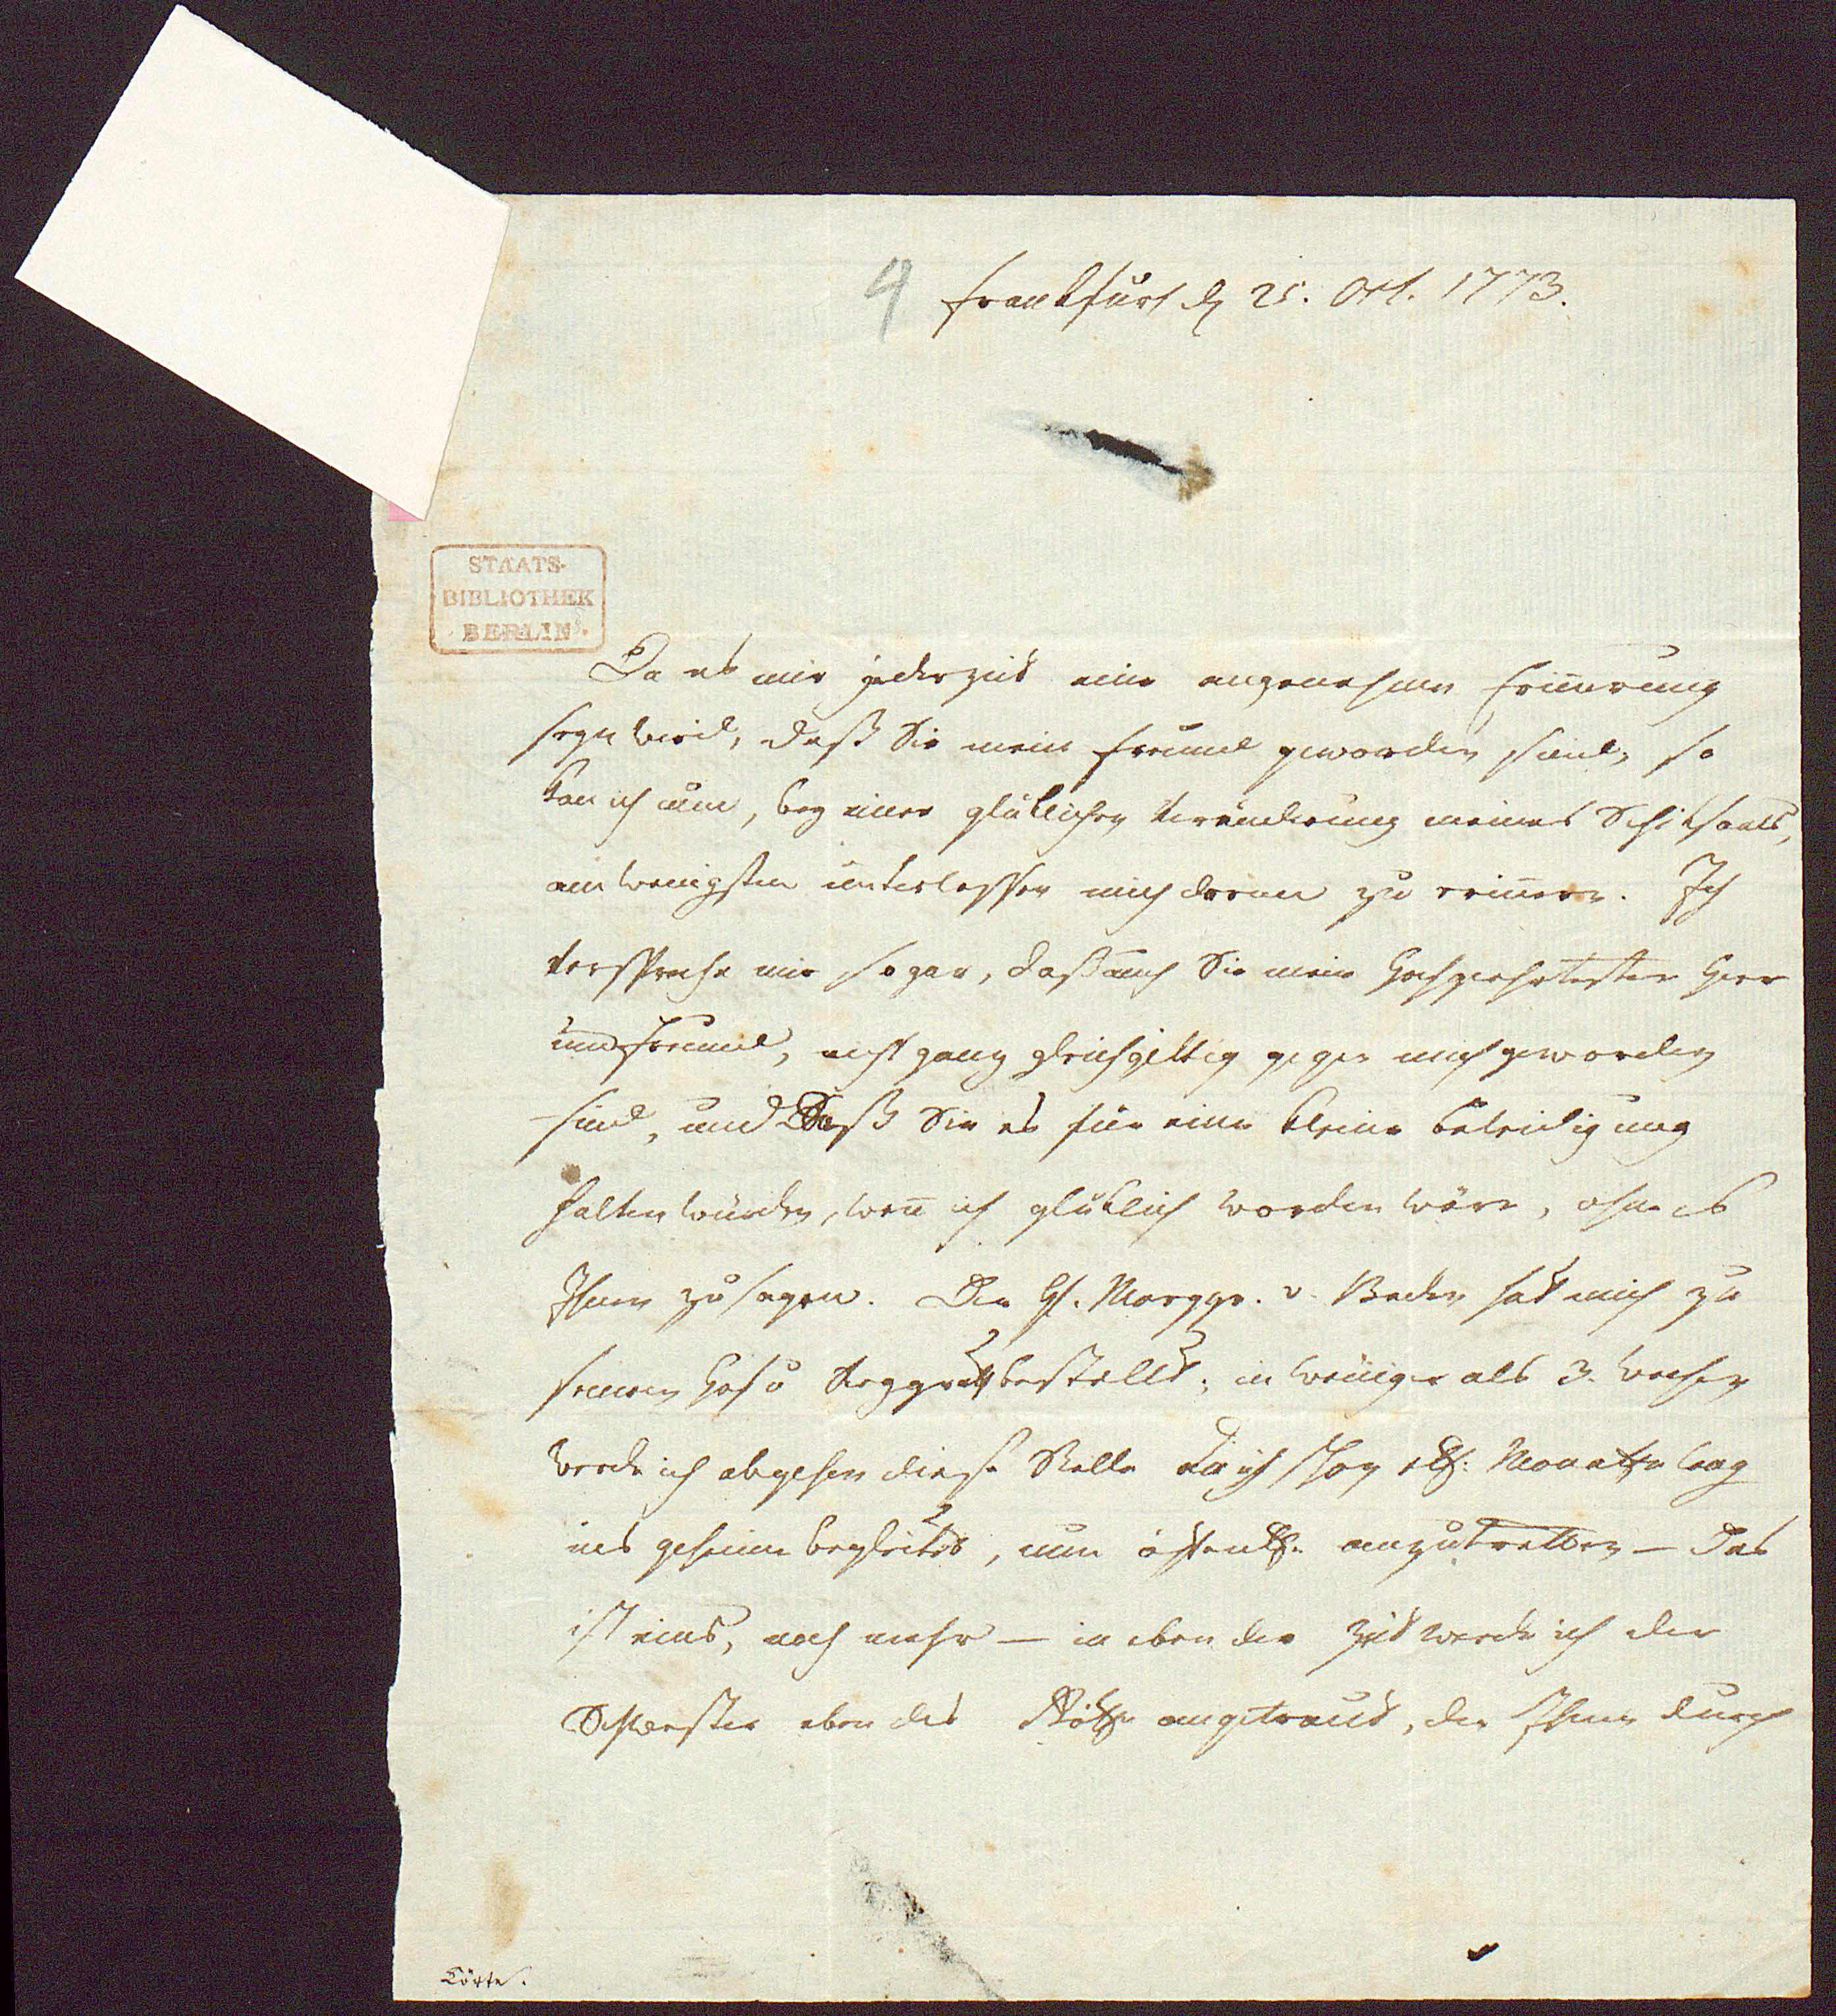 4 Frankfurt d 25. Oct. 1773.
STAATS-
BIBLIOTHEK
BERLIN
Da es mir jederzeit eine angenehme Erinnerung
seyn wird, daß Sie mein Freund geworden sind, so
kan ich nun, bey einer glüklichen Veränderung meines Schiksaals,
am wenigsten unterlassen mich daran zu erinnern. Ich
verspreche mir sogar, daß auch Sie mein Hochgeehrtester Herr
und Freund, nicht ganz gleichgiltig gegen mich geworden
sind, und daß Sie es für eine kleine Beleidigung
halten würden, wen̄ ich glüklich worden wäre, ohne es
Ihnen zu sagen. Der H. Marggr. v. Baden hat mich zu
seinem Hof u bestellt; in weniger als 3. Wochen
werde ich abgehen diese Stelle die ich schon Monathe lang
ins geheim begleitet, nun öffentl. anzutretten — Das
ist eins, noch mehr — in eben der Zeit werde ich der
Schwester eben des angetraut, der Ihnen durch
Körte.